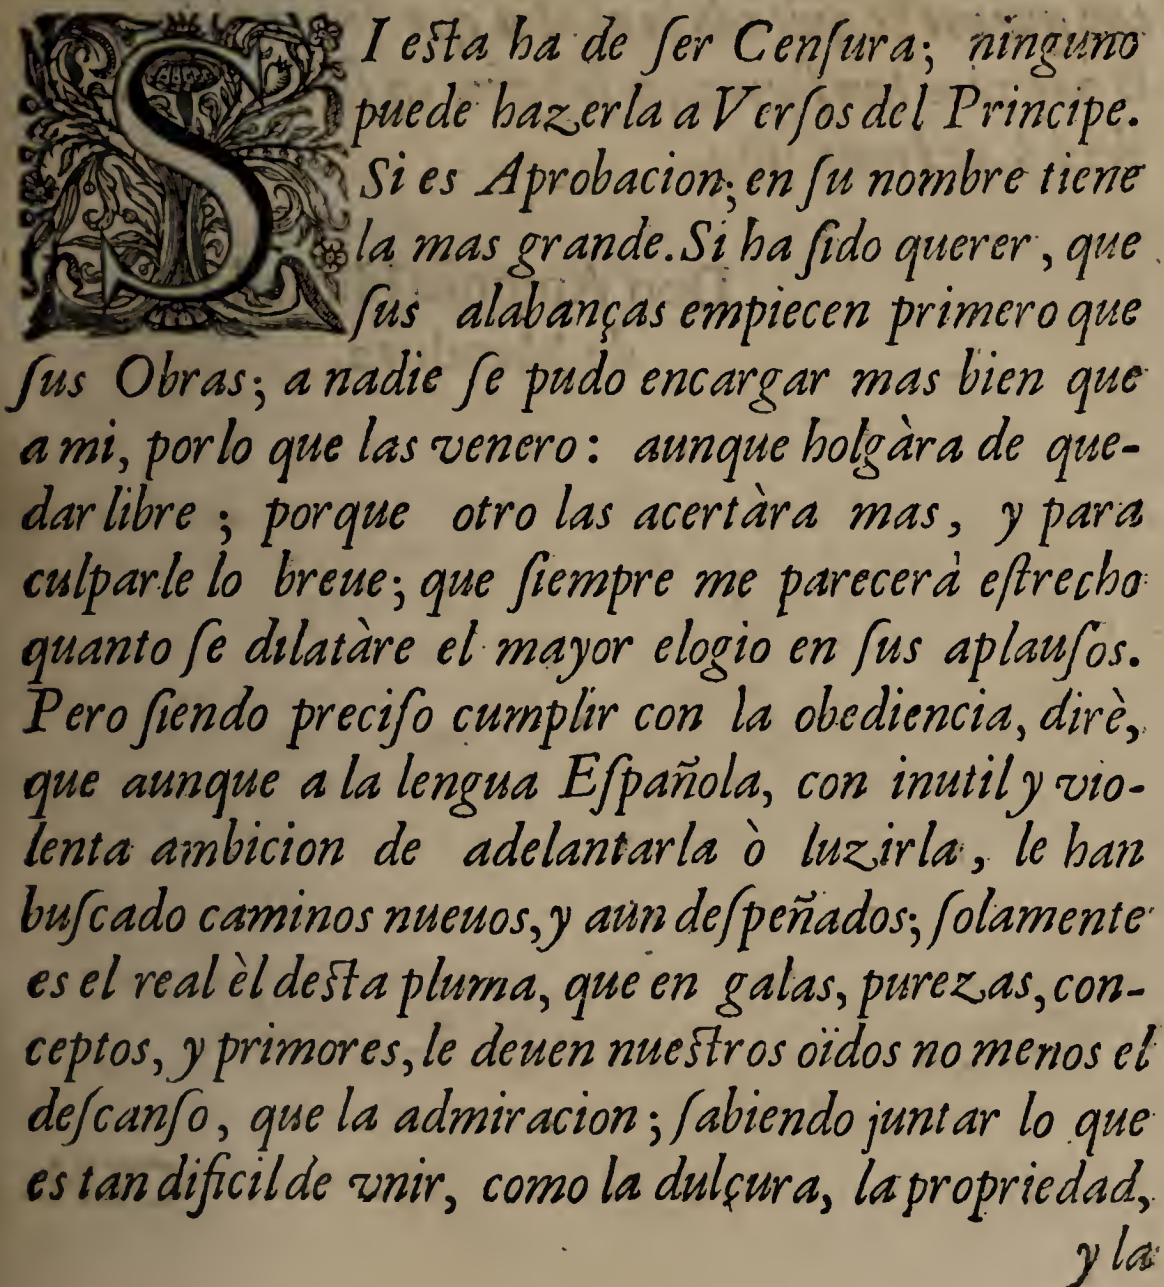 SI eſta ha de ſer Cenſura; ninguno
puede hazerla a Verſos del Principe.
Si es Aprobacion; en ſu nombre tiene
la mas grande. Si ha ſido querer, que
ſus alabanças empiecen primero que
ſus Obras; a nadie ſe pudo encargar mas bien que
a mi, por lo que las venero: aunque holgàra de que-
dar libre; porque otro las acertàra mas, y para
culparle lo breue; que ſiempre me parecerà eſtrecho
quanto ſe dilatàre el mayor elogio en ſus aplauſos.
Pero ſiendo preciſo cumplir con la obediencia, dirè,
que aunque a la lengua Eſpañola, con inutil y vio-
lenta ambicion de adelantarla ò luzirla, le han
buſcado caminos nueuos, y aun deſpeñados; ſolamente
es el real èl deſta pluma, que en galas, purezas, con-
ceptos, y primores, le deuen nueſtros oïdos no menos el
deſcanſo, que la admiracion; ſabiendo juntar lo que
es tan dificil de vnir, como la dulçura, la propriedad,
y la